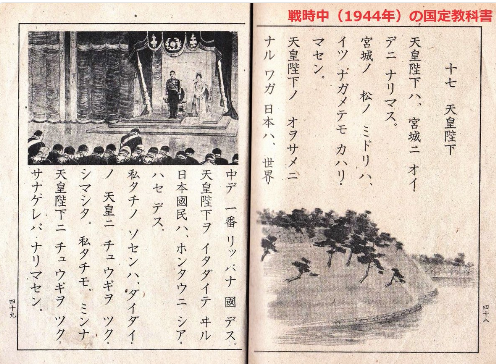 戦時中（1944年）の国定教科書
十七 天皇陛下
天皇陛下ハ、宮城ニ オイ
デニ ナリマス。
宮城ノ 松ノ ミドリハ、
イツ ナガメテモ カハリ
マセン。
天皇陛下ノ オヲサメニ
ナル ワガ 日本ハ、世界
四十八
中デ 一番 リッパナ 國 デス。
天皇陛下ヲ イタダイテ ヰル
日本國民ハ、ホンタウニ シア
ハセ デス。
私タチノ ソセンハ、ダイダイ
ノ 天皇ニ チュウギヲ ツク
シマシタ。私タチモ、ミンナ
天皇陛下ニ チュウギヲ ツク
サナケレバ ナリマセン。
四十九